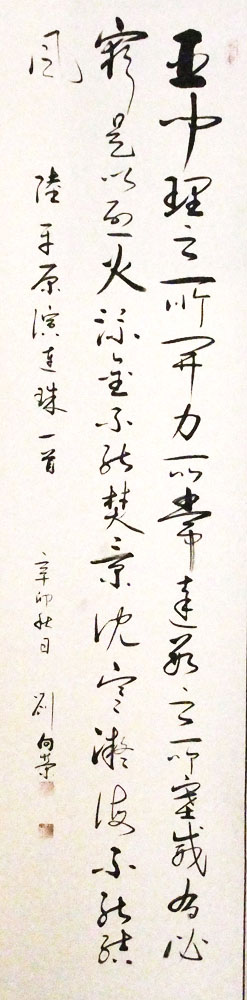 臣聞理之所開力所常達數之所塞威有必
窮是以烈火流金不能焚景沈寒凝海不能結
風
陸平原演連珠一首
辛卯秋日 劉向榮